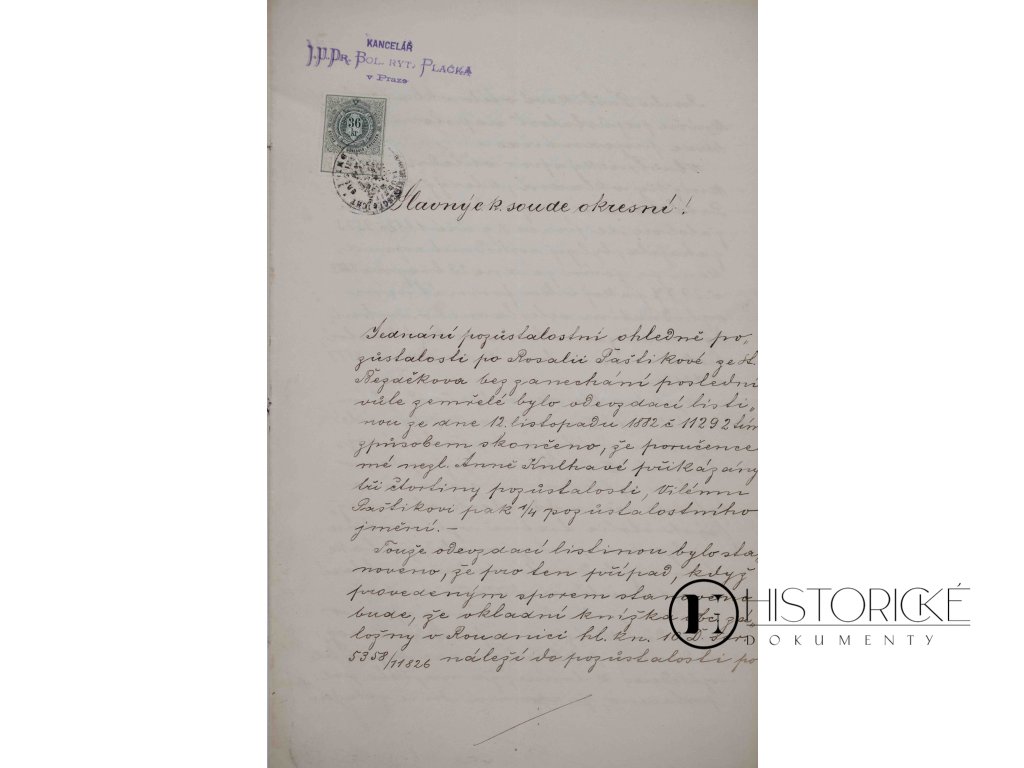 KANCELÁŘ
J.U.Dr. BOL. RYT. PLAČKA
v Praze
36
kr.
Slavný c k. soude okresní!
Jednání pozůstalostní ohledně po„
zůstalosti po Rosalii Paštikové ze st.
Nezděčkova bez zanechání poslední
vůle zemřelé bylo odevzdací listi„
nou ze dne 12. listopadu 1882 č 11292 tím
způsobem skončeno, že poručence
mé nezl. Anně Kulhavé přikázány
tři čtvrtiny pozůstalosti, Vilému
Paštikovi pak 1/4 pozůstalostního
jmění. –
Touže odevzdací listinou bylo sta„
noveno, že pro ten případ, když
provedeným sporem stanoveno
bude, že vkladní knížka obč. zá„
ložny v Roudnici hl. kn. 10 D.
5358/11826 náleží do pozůstalosti po
HISTORICKÉ
DOKUMENTY